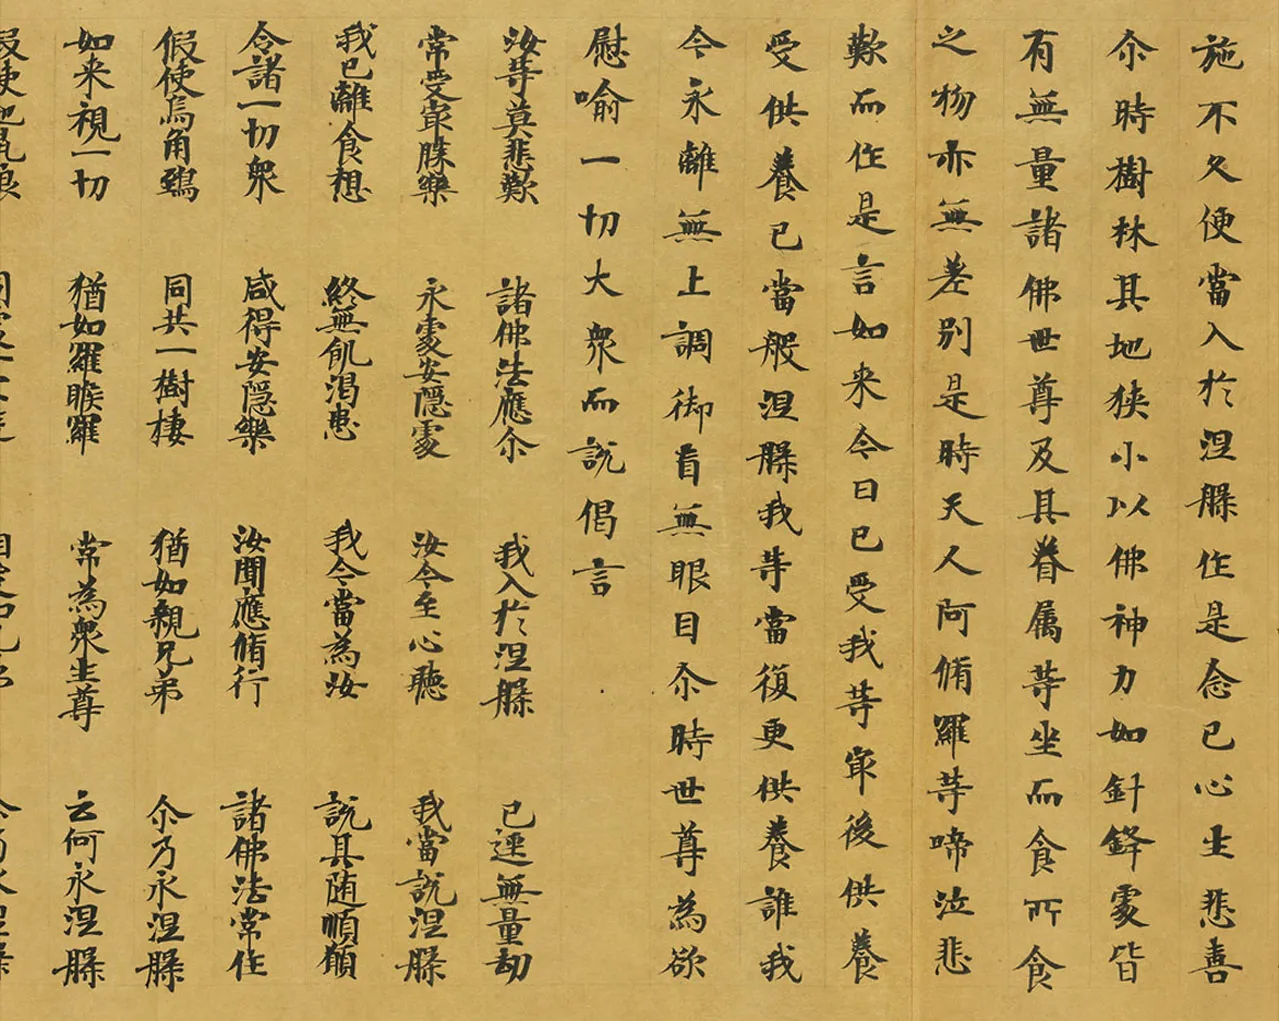 施不久便當入於涅槃作是念已心生悲喜
尒時樹林其地狹小以佛神力如針鋒處皆
有無量諸佛世尊及其眷属等坐而食所食
之物亦無差別是時天人阿脩羅等啼泣悲
歎而作是言如来今日已受我等最後供養
受供養已當般涅槃我等當復更供養誰我
今永離無上調御盲無眼目尒時世尊為欲
慰喻一切大眾而說偈言
汝等莫悲歎 諸佛法應尒 我入於涅槃 已逕無量劫
常受最勝樂 永處安隱處 汝今至心聽 我當說涅槃
我已離食想 終無飢渴患 我今當為汝 說其随順願
令諸一切眾 咸得安隱樂 汝聞應脩行 諸佛法常住
假使烏角鵄 同共一樹棲 猶如親兄弟 尒乃永涅槃
如来視一切 猶如羅睺羅 常為眾生尊 云何永涅槃